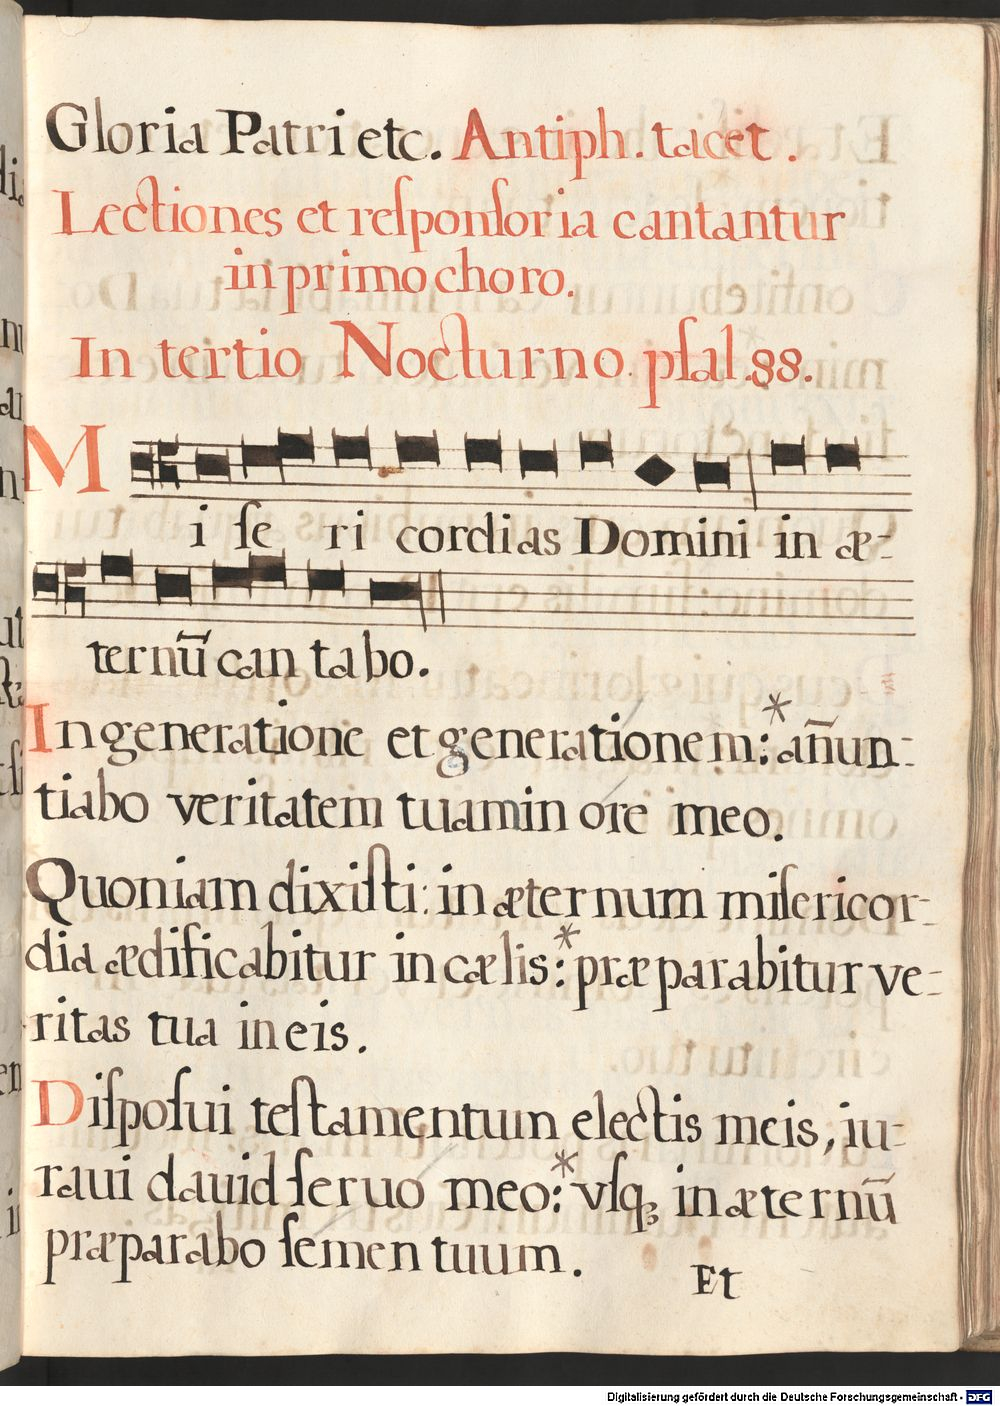 Gloria Patri etc. Antiph. tacet.
Lectiones et reſponſoria cantantur
in primo choro.
In tertio Nocturno. pſal. 88.
Miſericordias Domini in æ-
ternū cantabo.
In generatione et generationem: * an̄un-
tiabo veritatem tuam in ore meo.
Quoniam dixiſti: in æternum miſericor-
dia ædificabitur in cælis: * præparabitur ve-
ritas tua in eis.
Diſpoſui teſtamentum electis meis, iu-
raui dauid ſeruo meo: * vſq; in æternū
præparabo ſemen tuum.
Et
Digitalisierung gefördert durch die Deutsche Forschungsgemeinschaft - DFG